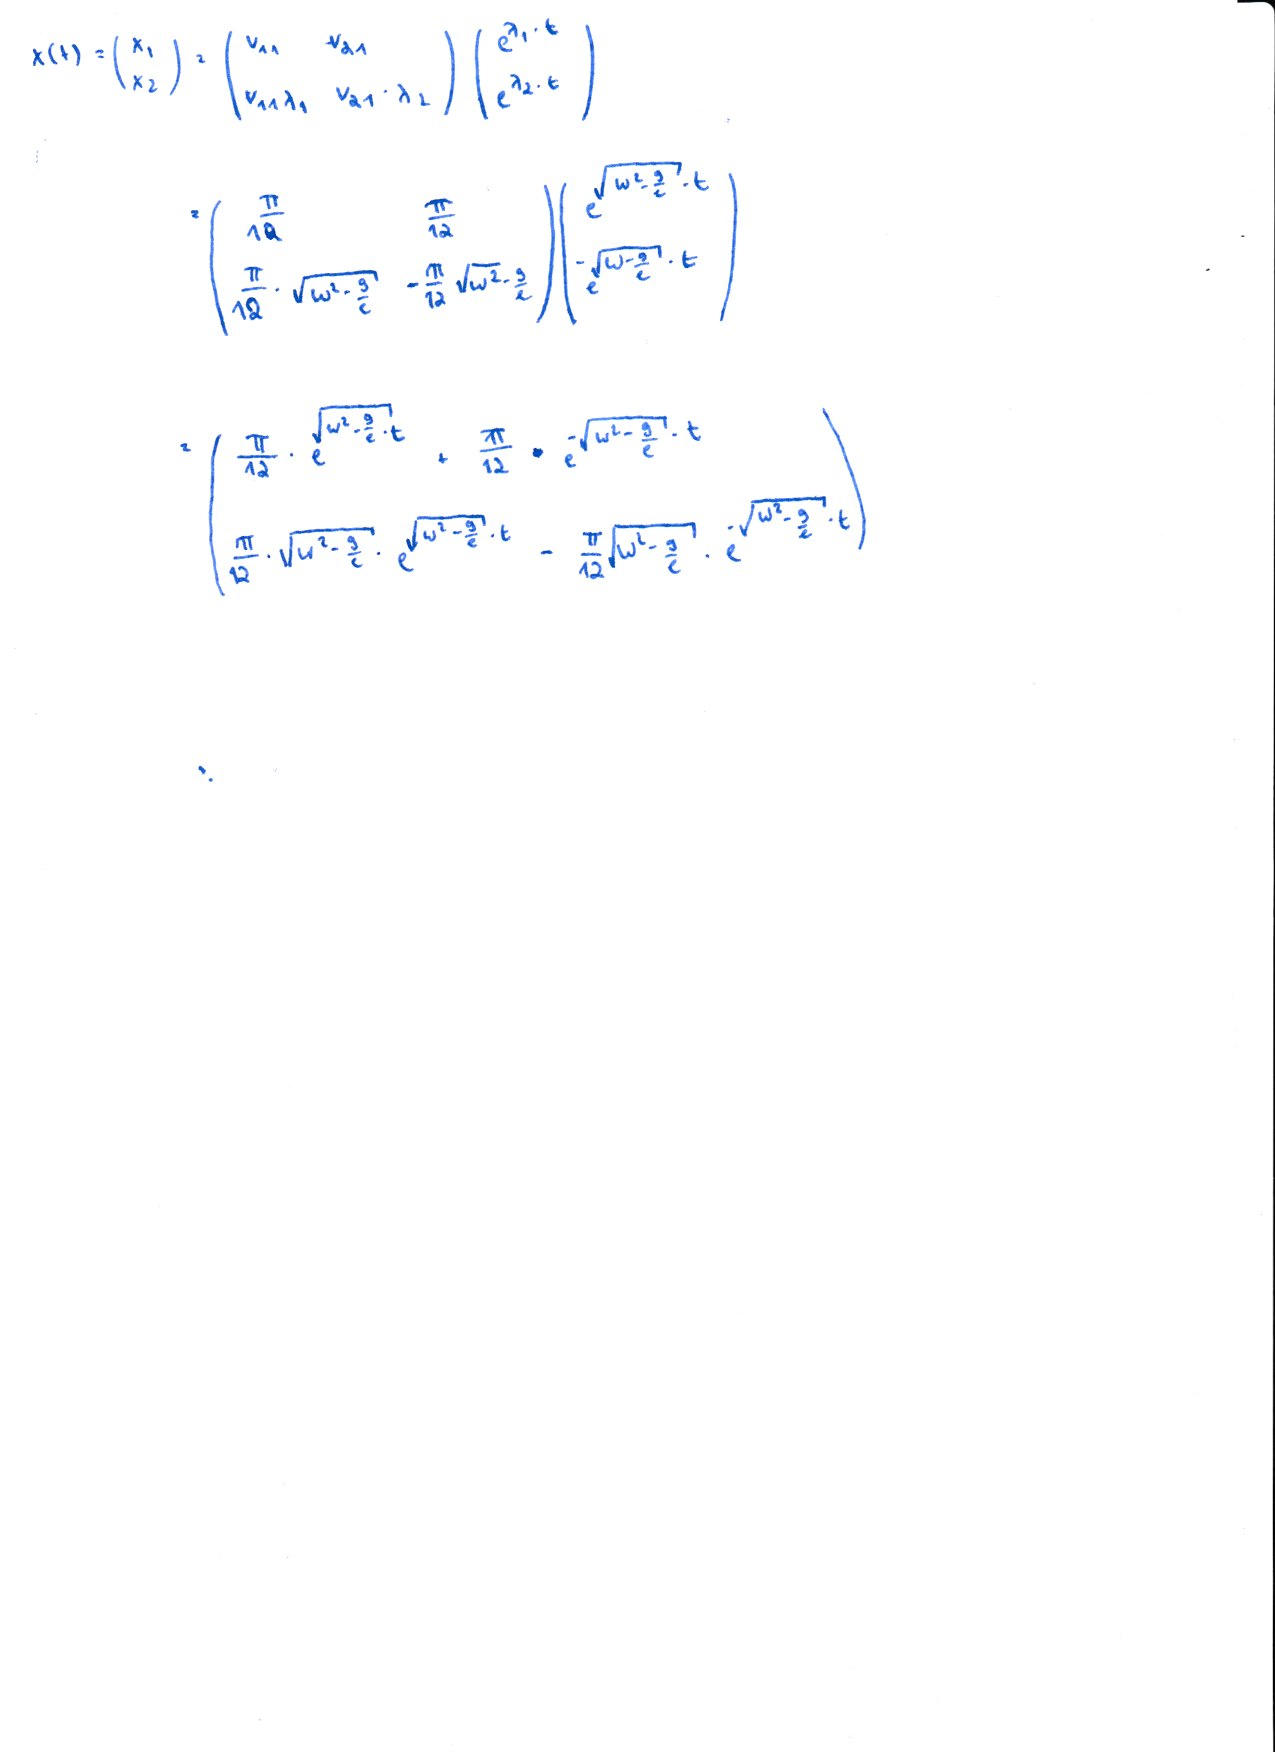 x(t) = ( x₁ ; x₂ ) = ( v₁₁  v₂₁ ; v₁₁λ₁  v₂₁·λ₂ ) ( e^(λ₁·t) ; e^(λ₂·t) )
= ( π/12  π/12 ; π/12 · √(w²-g/l)  -π/12 √(w²)-g/l ) ( e^(√(w²-g/l)·t) ; e^(-√(w-g/l)·t) )
= ( π/12 · e^(√(w²-g/l)·t) + π/12 · e^(-√(w²-g/l)·t) ; π/12 · √(w²-g/l) · e^(√(w²-g/l)·t) - π/12 √(w²-g/l) · e^(-√(w²-g/l)·t) )